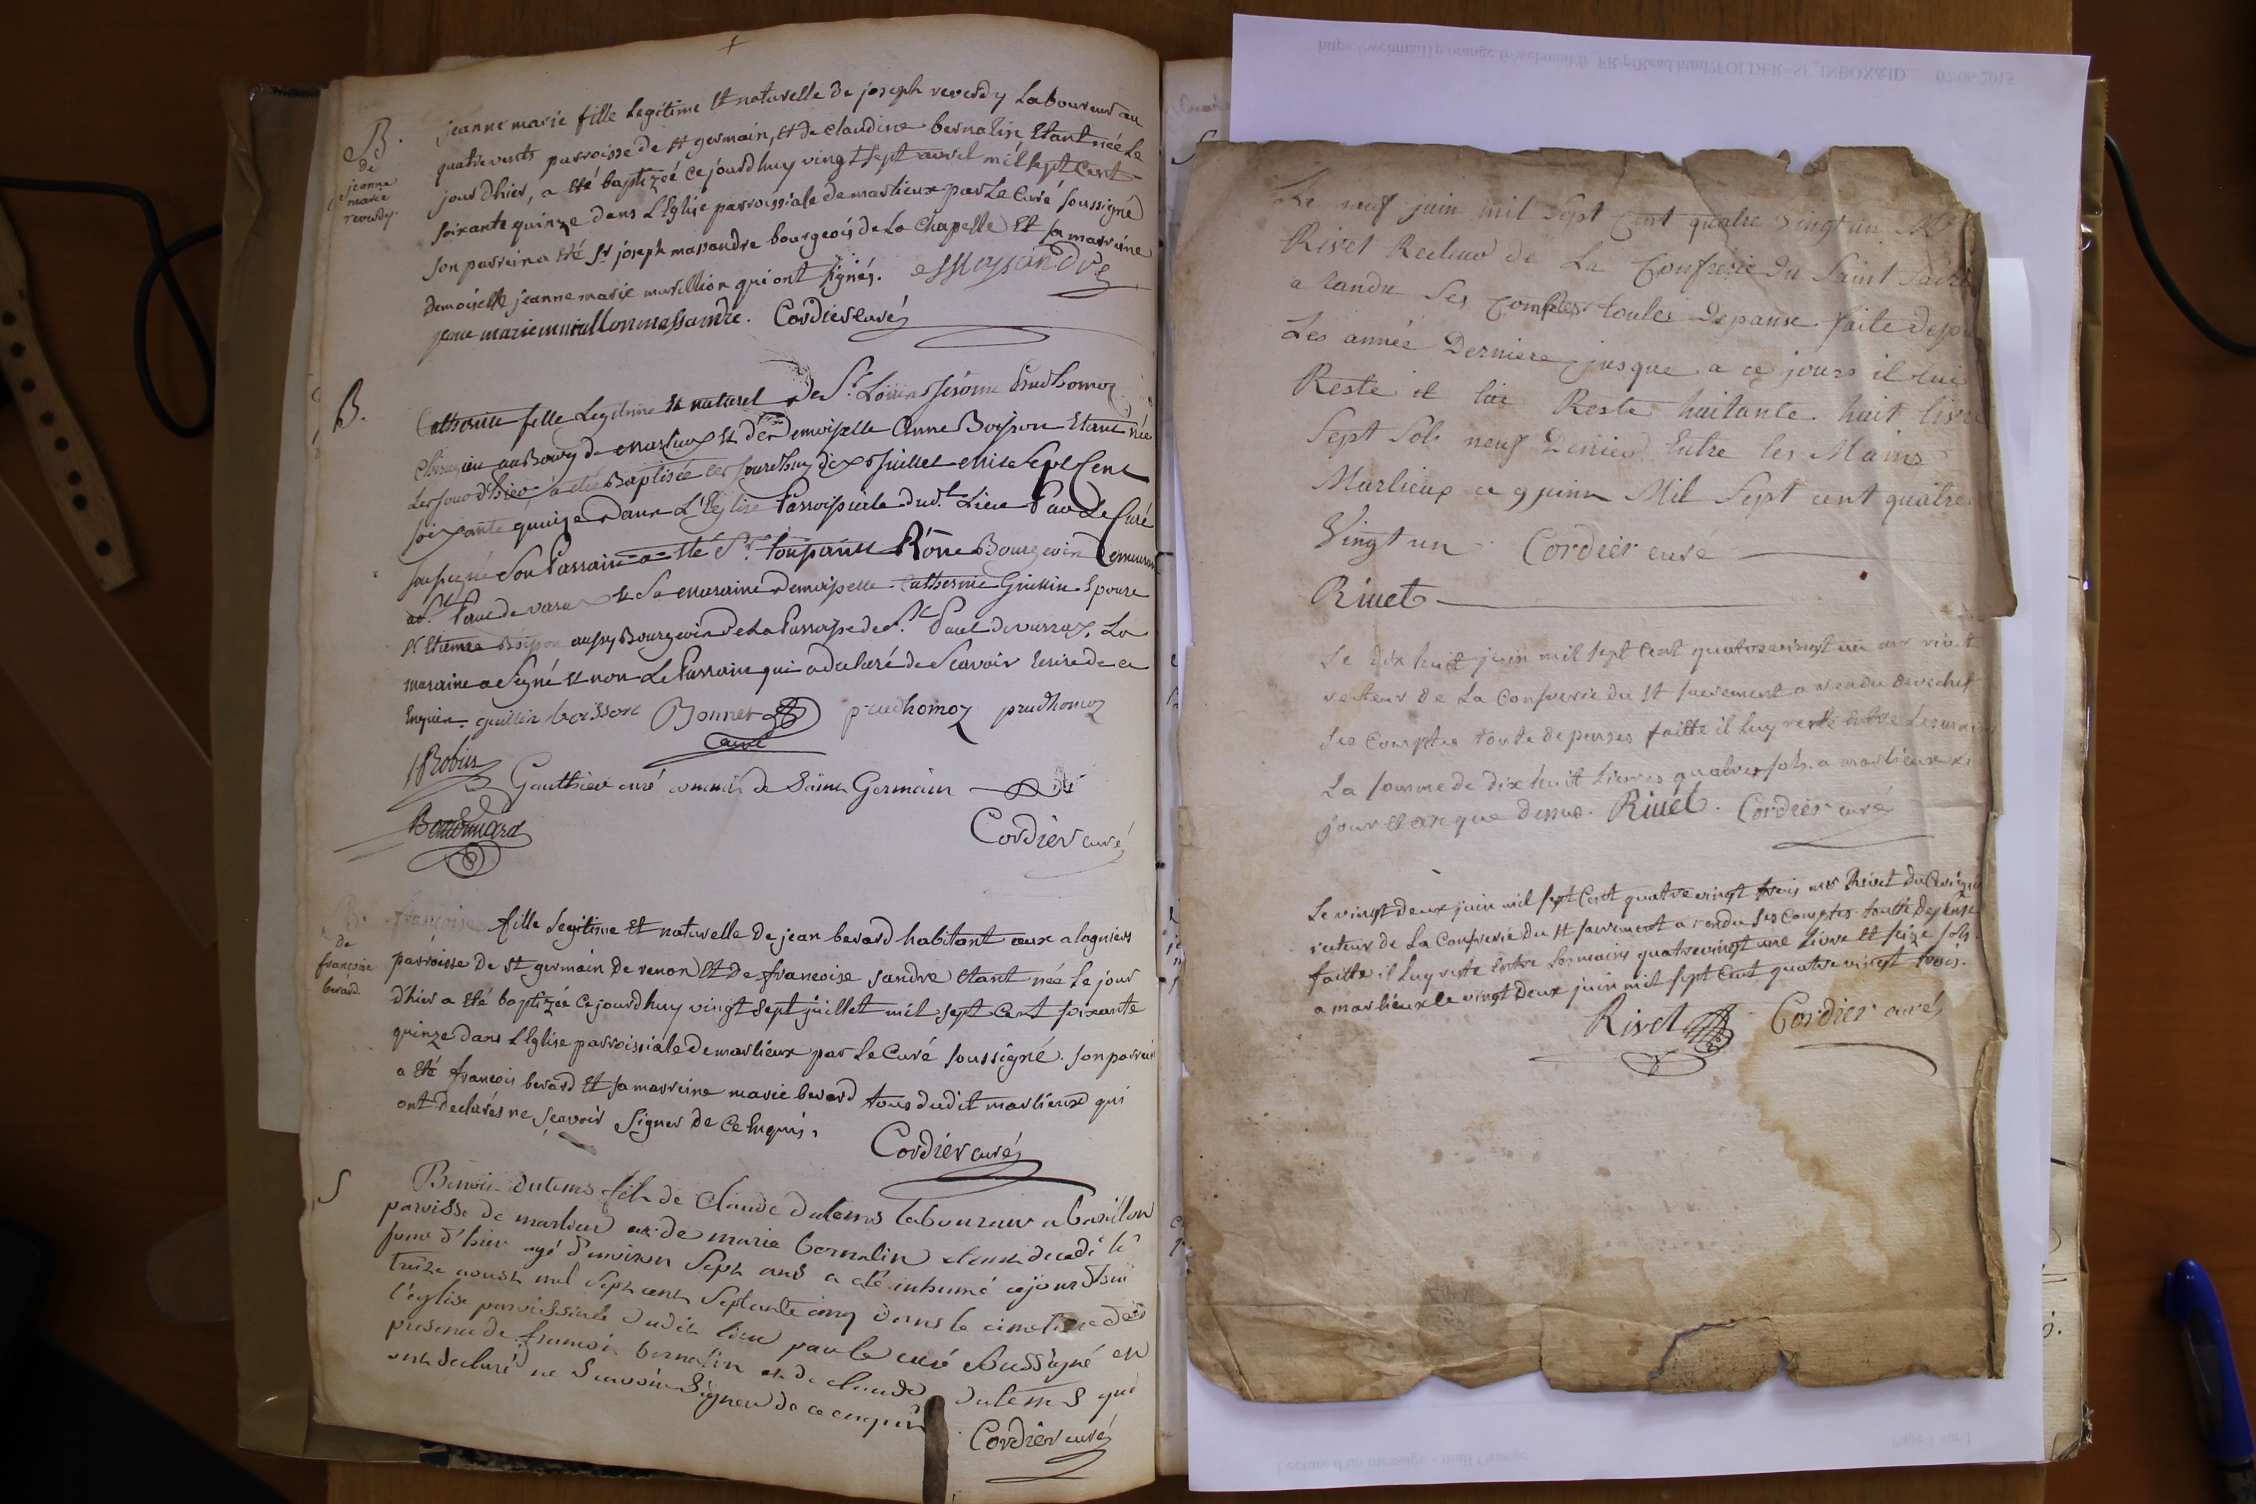 B.
de
jeanne
marie
reverdy.
jeanne marie fille Legitime et naturelle de joseph reverdy Laboureur au
quatrevents parroisse de st germain, et de claudine bernalin Etant née Le
jour dhier, a eté baptizeé cejourdhuy vingt sept avril mil sept cent
soixante quinze dans L'Eglise parroissiale de marlieux par Le Curé soussigné
son parrein a eté sr joseph massandre bourgeois de La Chapelle Et sa marreine
demoiselle jeanne marie murillion qui ont signés.
Cordier curé
B.
Catherine fille Legitime et naturel de Sr. Jérome Prudhomoz
au Bourg de Marlieux et de Demoiselle Anne Boisson Etant née
Le jour d'hier a eté Baptisée ce jourdhuy dix Juillet Mil Sept Cent
soixante quinze dans L'Eglise Parroissiale dudt. Lieu Par Le Curé
soussigné Son Parrain a eté Sr. Rône Bourgeois Demeurant
a St. Paul de varax et Sa Maraine Demoiselle Catherine Guillin Epouse
Sr Boisson aussy Bourgeois de La Parroisse de St. Paul de varax, La
maraine a Signé et non Le Parrain qui a declaré de Scavoir Ecrire de ce
Enquis. guillin boisson Bonnet curé prudhomoz prudhomoz
Robin
Gauthier curé commis de Saint Germain
Cordier curé
B.
de
françoise
berard.
françoise fille Legitime et naturelle de jean berard habitant aux alogniers
parroisse de st germain de renon et de francoise sandre etant née Le jour
dhier a eté baptizée cejourdhuy vingt sept juillet mil sept cent soixante
quinze dans L'Eglise parroissiale de marlieux par Le Curé soussigné. son parrein
a eté françois berard et sa marreine marie berard tous dudit marlieux qui
ont declarés ne sçavoir signer de ce enquis.
Cordier curé
S
Benoit dutems fils de Claude dutems laboureur a
paroisse de marlieu et de marie bernalin etant decedé le
jour d'hier agé d'environ sept ans a eté inhumé cejourd'hui
treize aoust mil sept cent septante cinq dans le cimetiere de
l'église paroissiale dudit lieu par le curé soussigné en
presence de françois bernalin et de claude dutems qui
ont declaré ne scavoir signer de ce enquis
Cordier curé
Le neuf juin mil sept cent quatre vingt un Mr
Rivet Recteur de La Confrerie du Saint Sacre
a randu ses comptes toutes Depanse faite depui
Les année Derniere jusque a ce jours il lui
Reste il lui Reste huitante huit livre
Sept Sols neuf Denier Entre les Mains
Marlieux ce 9 juin Mil Sept cent quatre
Vingt un Cordier curé
Rivet
Le dix huit juin mil sept cent quatrevingt un mr rivet
recteur de La Confrerie du st sacrement a rendu derechef
ses Comptes toute depenses faitte il luy reste Entre Les main
La somme de dix huit Livres quatre sols. a marlieux
jour et an que dessus. Rivet. Cordier curé
Le vingt deux juin mil sept Cent quatrevingt trois mr Rivet
recteur de La Confrerie du st sacrement a rendu ses Comptes. toutte depense
faitte il Luy reste Entre Les mains quatrevingt une Livre et seize sols.
a marlieux le vingt deux juin mil sept cent quatre vingt trois.
Rivet Cordier curé